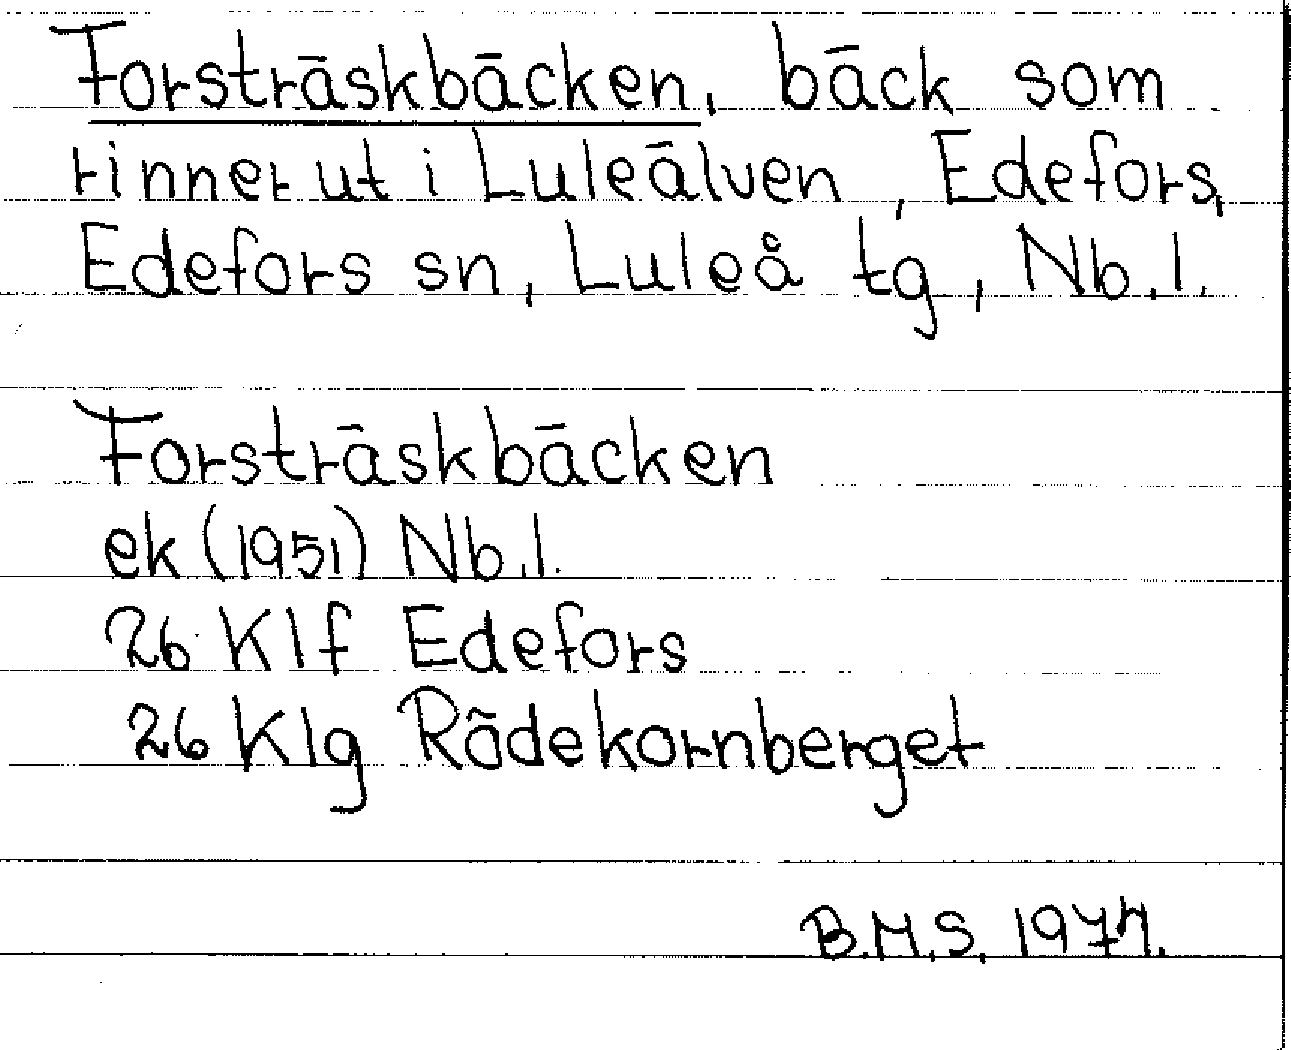 Forsträskbäcken, bäck som
rinner ut i Luleälven, Edefors,
Edefors sn, Luleå tg, Nb.l.
Forsträskbäcken
ek (1951) Nb.l.
26 Klf Edefors
26 Klg Rödekornberget
B.M.S. 1974.